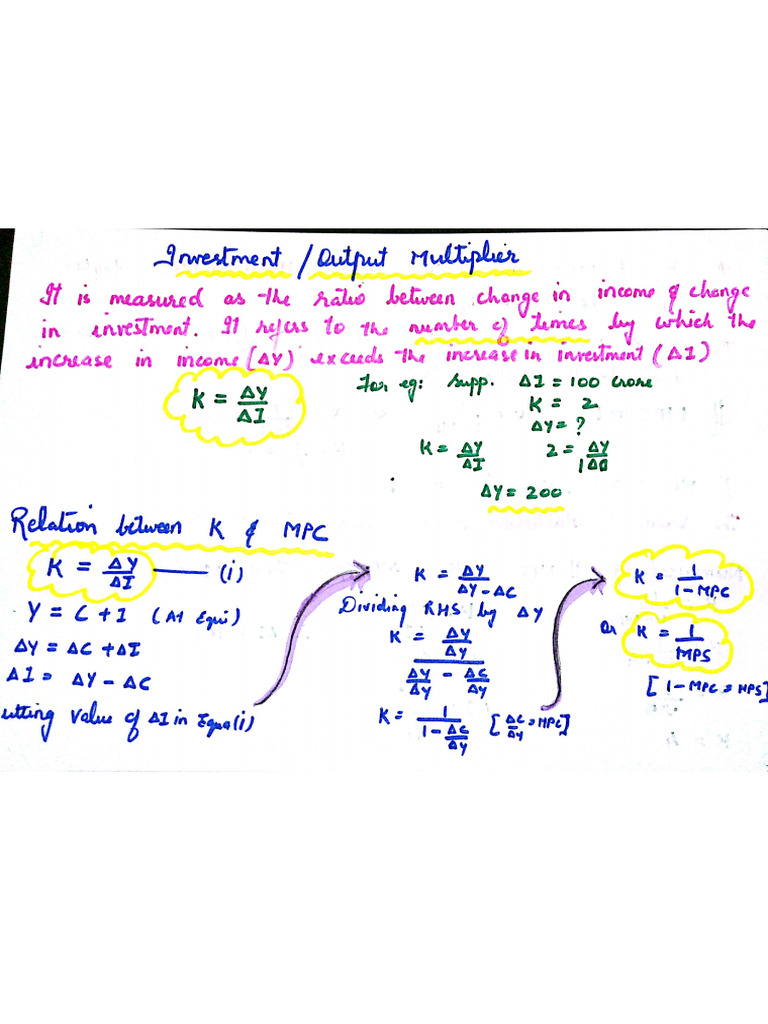 Investment / Output Multiplier
It is measured as the ratio between change in income & change
in investment. It refers to the number of times by which the
increase in income (ΔY) exceeds the increase in investment (ΔI)
K = ΔY/ΔI
For eg: Supp. ΔI = 100 crore
K = 2
ΔY = ?
K = ΔY/ΔI 2 = ΔY/100
ΔY = 200
Relation between K & MPC
K = ΔY/ΔI —— (i)
Y = C + I (At Equi)
ΔY = ΔC + ΔI
ΔI = ΔY – ΔC
utting value of ΔI in Equa(i)
K = ΔY/ΔY – ΔC
Dividing RHS by ΔY
K = ΔY/ΔY
ΔY/ΔY – ΔC/ΔY
K = 1/1 – ΔC/ΔY [ΔC/ΔY = MPC]
K = 1/1 – MPC
Or K = 1/MPS
[1 – MPC = MPS]